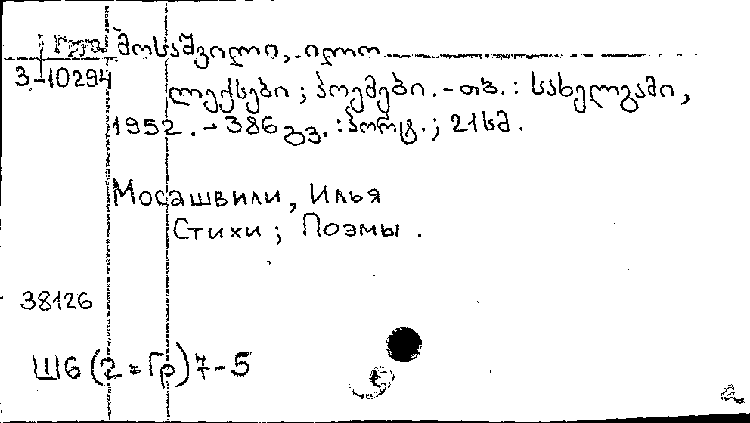 მოსაშვილი, ილო
3-10294
ლექსები ; პოემები. - თბ. : სახელგამი,
1952. - 386 გვ. : პორტ. ; 21 სმ.
Мосашвили, Илья
Стихи ; Поэмы .
38126
Ш6(2=Гр)7-5